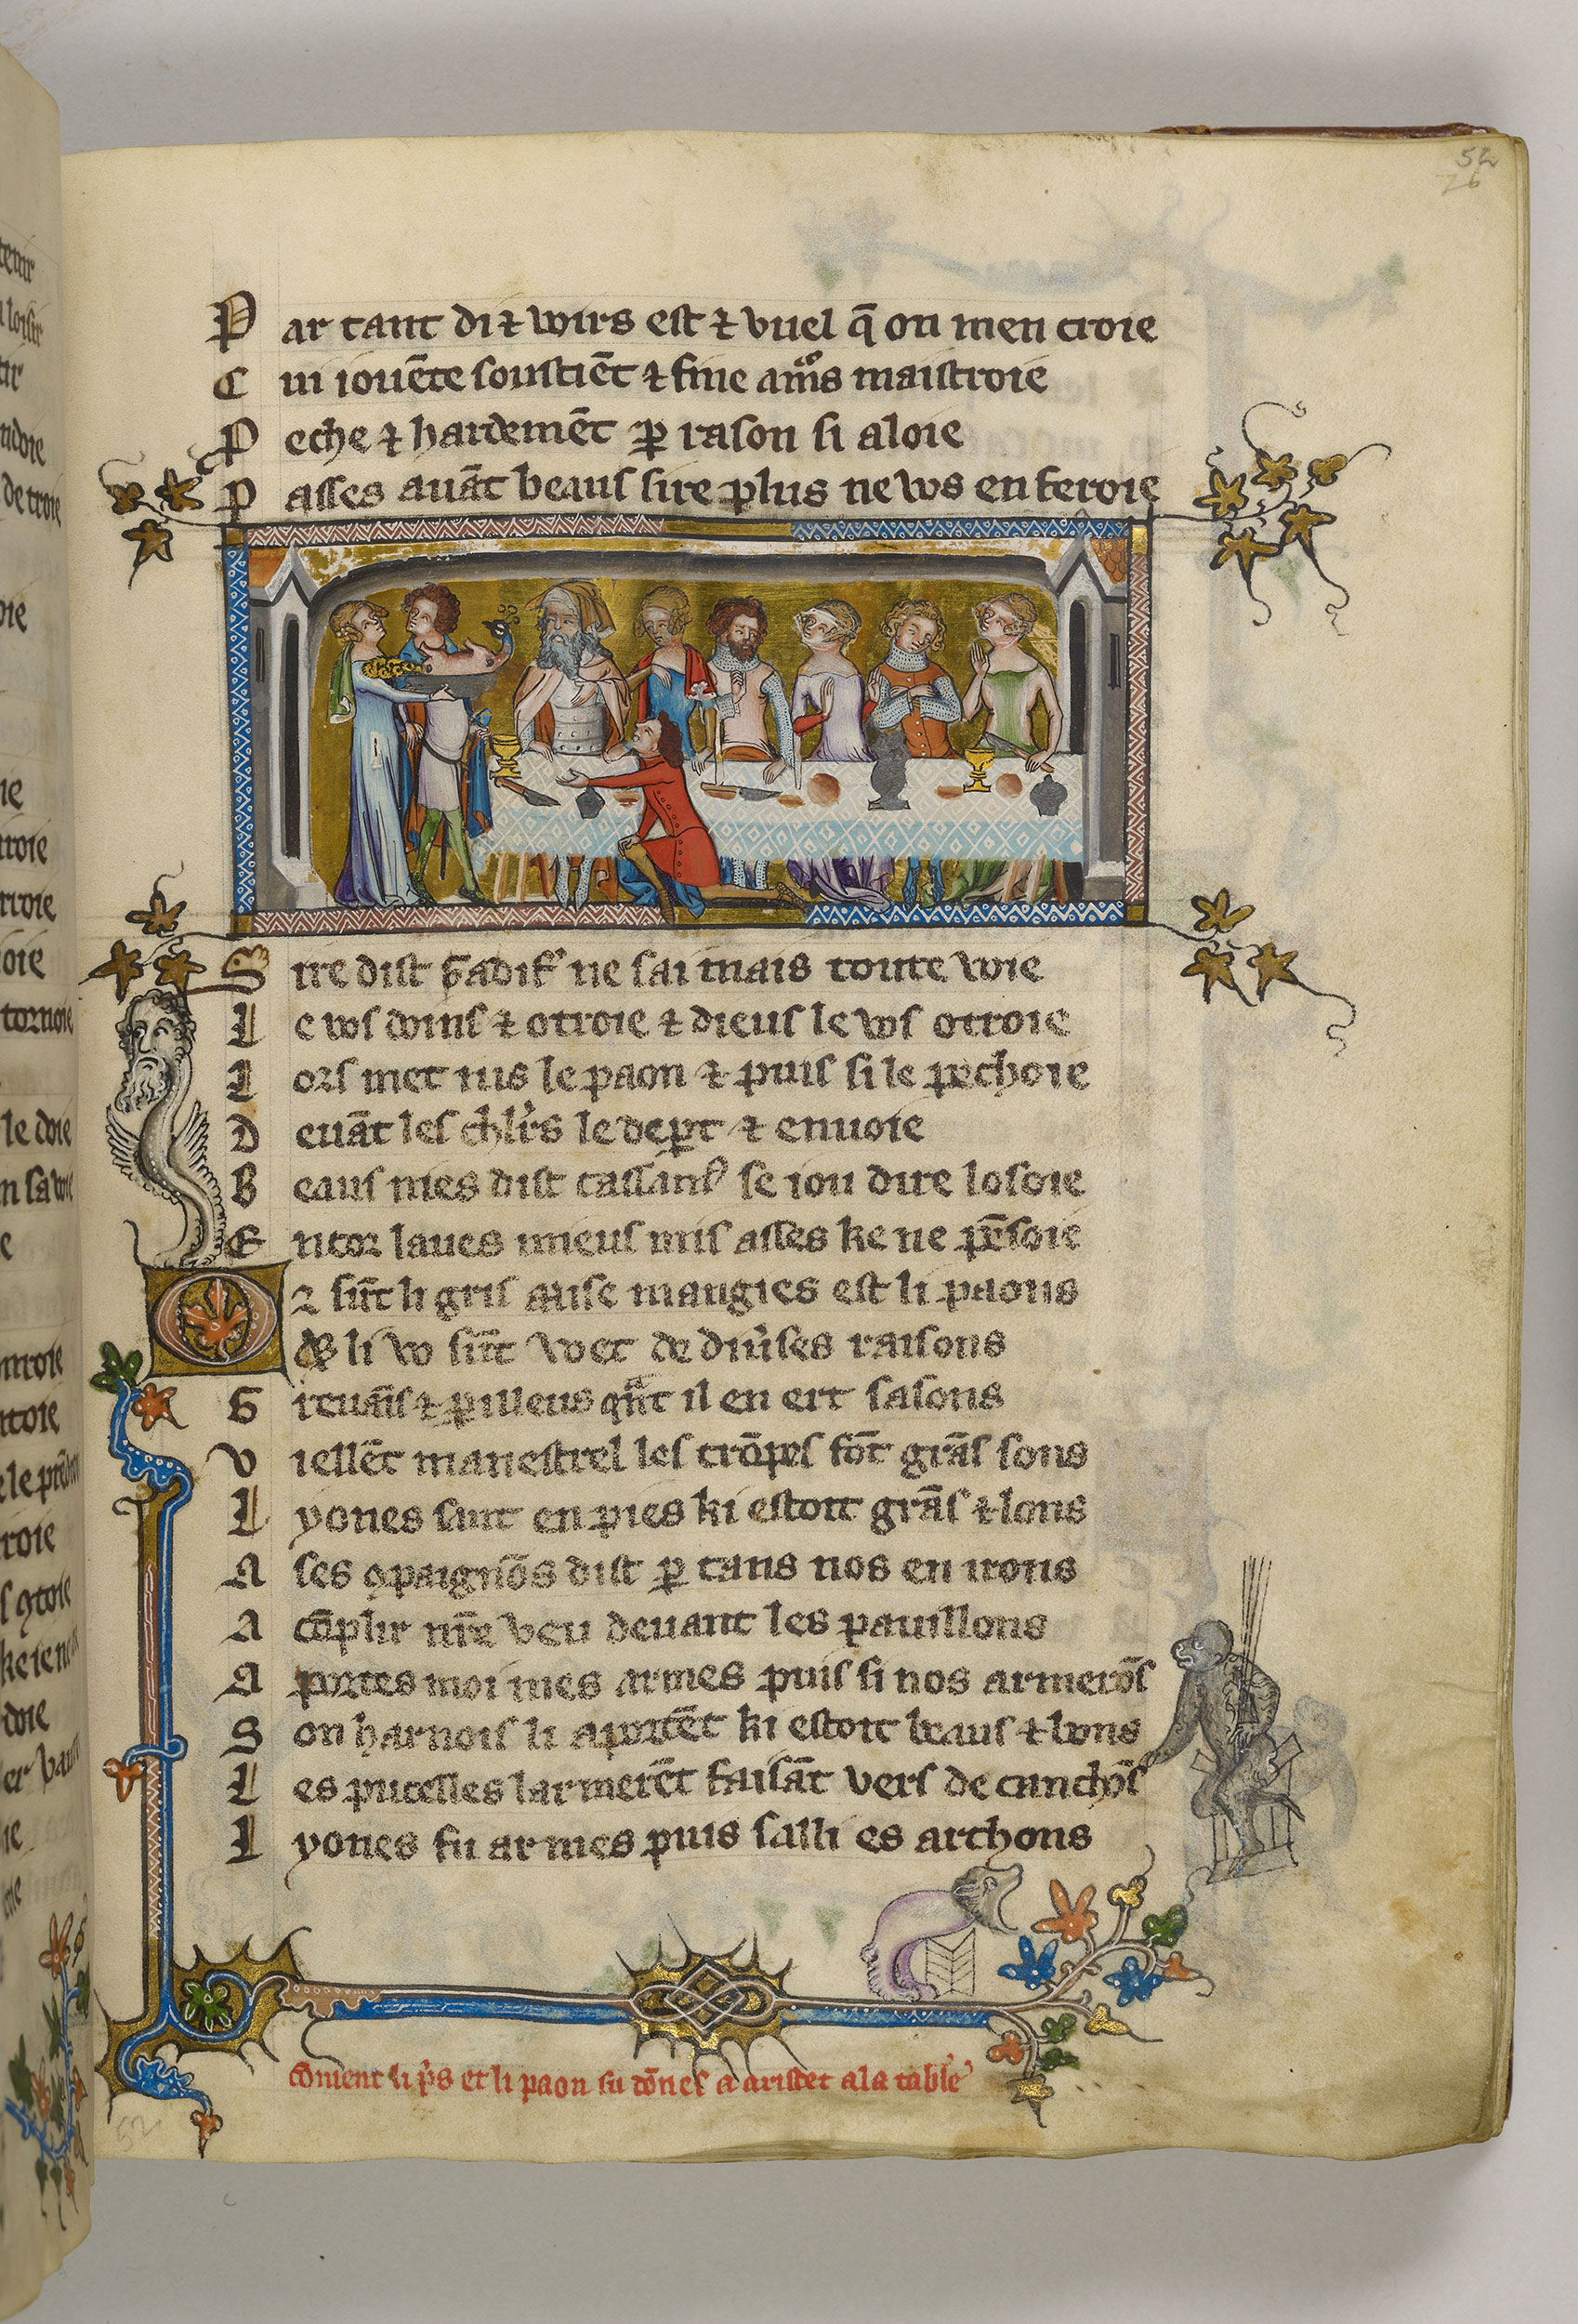 52
26
Par tant di ⁊ voirs est ⁊ vuel q̄ on men croie
Cui iouēte soustiēt ⁊ fine am̄s maistroie
Peche ⁊ hardemēt ꝑ rason si aloie
Passes auāt beaus sire plus ne vos en feroie
Sire dist ne sai mais toute voie
Le vos doins ⁊ otroie ⁊ dieus le vos otroie
Lors met ius le paon ⁊ puis si le pechoie
Deuāt les chlrs le deꝑt ⁊ enuoie
Beaus mes dist cassans se iou dire losoie
Entor laues mieus mis asses ke ne pēsoie
Or sūt li gris mangies est li paons
li vo sūt voet de diuses raisons
⁊ ꝑilleus qnt il en ert sasons
Viellēt manestrel les trōpes fōt grās sons
Lyones saut en pies ki estoit grās ⁊ lons
A ses ꝯpaignōs dist ꝑ tans nos en irons
Acōplir nr̄e veu deuant les pauillons
Aportes moi mes armes puis si nos armerōs
Son harnois li aportēt ki estoit beaus ⁊ bons
Les pucelles larmerēt faisāt vers de canchōs
Lyones fu armes puis salli es archons
cōment li et li paon fu dōnes a aristet a la table
52